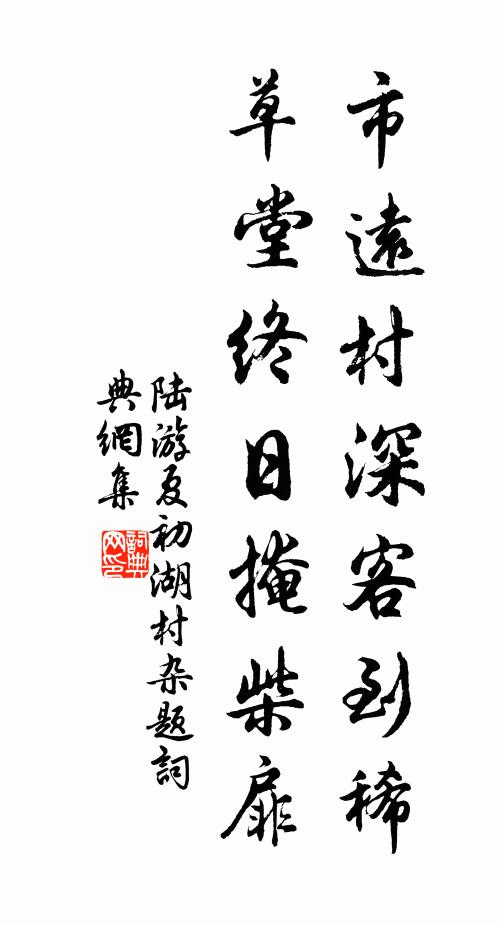 市遠村深客到稀
草堂終日掩柴扉
陆游夏初湖村杂题詞
典網集
詞典
网印